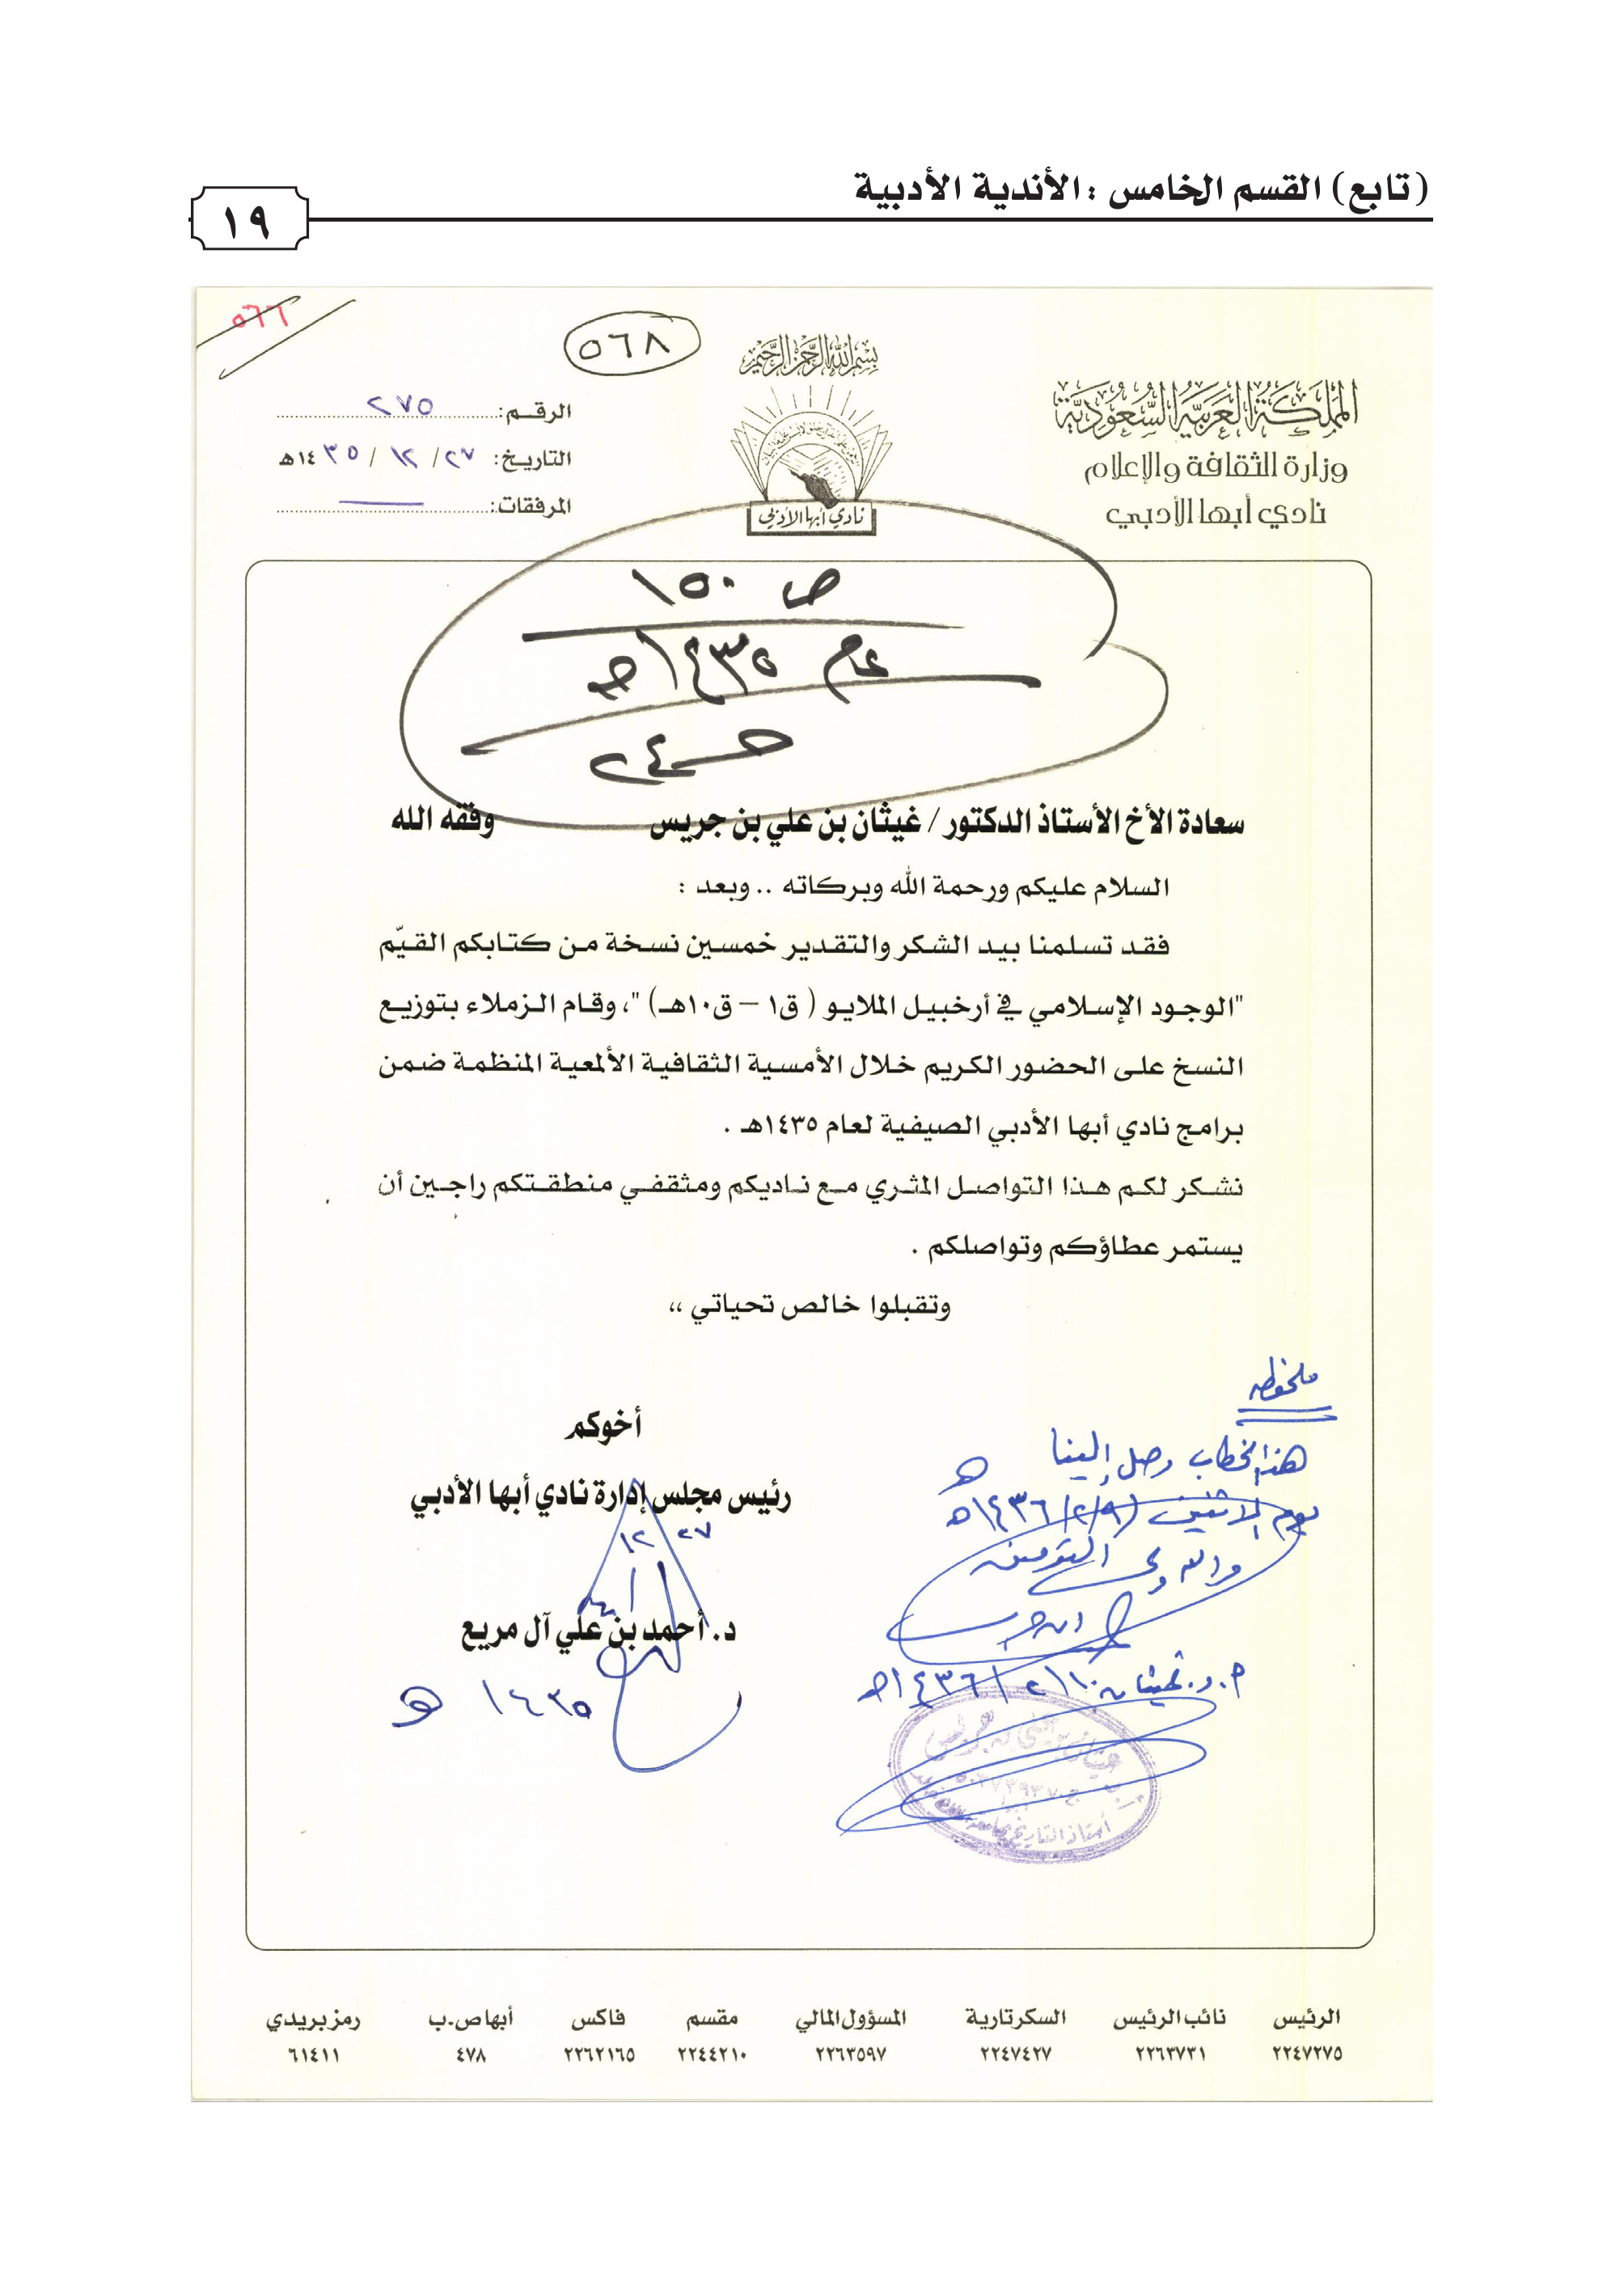 (تابع) القسم الخامس : الأندية الأدبية
١٩
٥٦٦
٥٦٨
بسم الله الرحمن الرحيم
المملكة العربية السعودية
وزارة الثقافة والإعلام
نادي أبها الأدبي
نادي أبها الأدبي
الرقم: ٢٧٥
التاريخ: ٢٧ / ١٢ / ١٤٣٥هـ
المرفقات:
ص ١٥٠
عام ١٤٣٥هـ
حـ ٢٤
سعادة الأخ الأستاذ الدكتور / غيثان بن علي بن جريس وفقه الله
السلام عليكم ورحمة الله وبركاته .. وبعد :
فقد تسلمنا بيد الشكر والتقدير خمسين نسخة من كتابكم القيّم
"الوجود الإسلامي في أرخبيل الملايو ( ق١ – ق١٠هـ) "، وقام الزملاء بتوزيع
النسخ على الحضور الكريم خلال الأمسية الثقافية الألمعية المنظمة ضمن
برامج نادي أبها الأدبي الصيفية لعام ١٤٣٥هـ .
نشكر لكم هذا التواصل المثري مع ناديكم ومثقفي منطقتكم راجين أن
يستمر عطاؤكم وتواصلكم .
وتقبلوا خالص تحياتي ،،
أخوكم
رئيس مجلس إدارة نادي أبها الأدبي
٢٧ ١٢
د. أحمد بن علي آل مريع
١٤٣٥ هـ
ملحوظه
هذا الخطاب وصل إلينا
يوم الاثنين (١٤٣٦/٢/٩هـ
والله ولي التوفيق
ابن جريس
أ.د. غيثان ١٤٣٦/٢/١٠هـ
غيثان بن علي بن جريس
أستاذ التاريخ
الرئيس نائب الرئيس السكرتارية المسؤول المالي مقسم فاكس أبها ص.ب رمز بريدي
٢٢٤٧٢٧٥ ٢٢٦٣٧٣١ ٢٢٤٧٤٢٧ ٢٢٦٣٥٩٧ ٢٢٤٤٢١٠ ٢٢٦٢١٦٥ ٤٧٨ ٦١٤١١